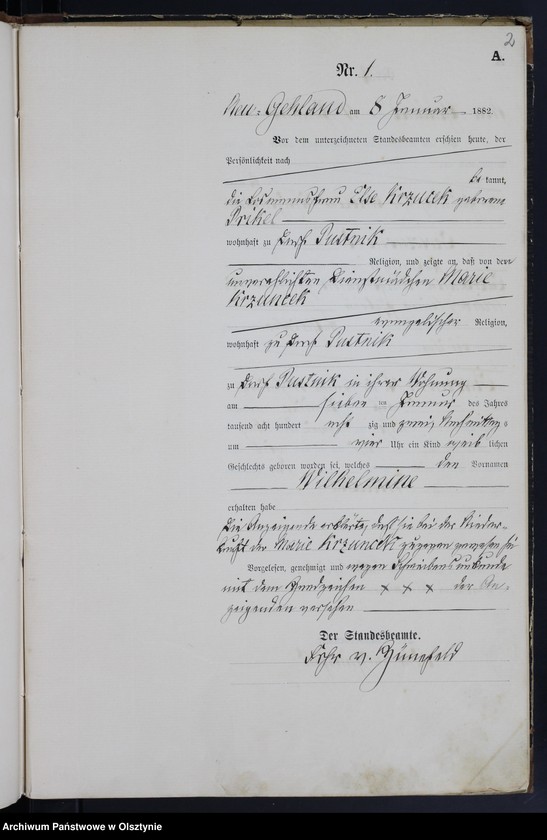 2
A.
Nr. 1.
Neu-Gehland am 8 Januar 1882.
Vor dem unterzeichneten Standesbeamten erschien heute, der
Persönlichkeit nach
be kannt,
die Losmannsfrau Else Krzucek geborene
Prikel
wohnhaft zu Dorf Pustnik
Religion, und zeigte an, daß von der
unverehelichten Dienstmädchen Marie
Krzuncek
evangelischer Religion,
wohnhaft zu Dorf Pustnik
zu Dorf Pustnik in ihrer Wohnung
am sieben ten Januar des Jahres
tausend acht hundert acht zig und zwei, Nachmittags
um vier Uhr ein Kind weib lichen
Geschlechts geboren worden sei, welches den Vornamen
Wilhelmine
erhalten habe
Die Anzeigende erklärte, daß sie bei der Nieder-
kunft der Marie Krzuncek zugegen gewesen sei
Vorgelesen, genehmigt und wegen Schreibensunkunde
mit dem Handzeichen + + + der An-
zeigenden versehen
Der Standesbeamte.
v.
Archiwum Państwowe w Olsztynie